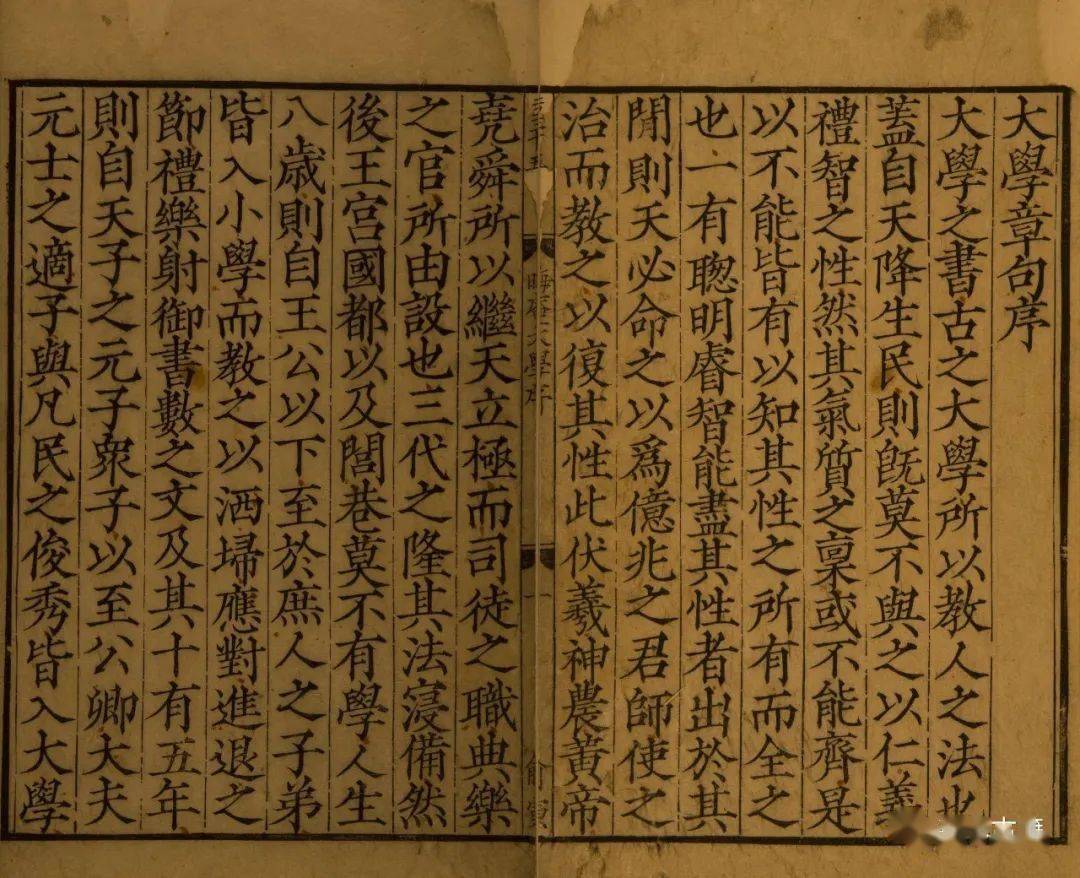 大學章句序
大學之書古之大學所以教人之法也
蓋自天降生民則旣莫不與之以仁義
禮智之性然其氣質之稟或不能齊是
以不能皆有以知其性之所有而全之
也一有聰明睿智能盡其性者出於其
閒則天必命之以爲億兆之君師使之
治而教之以復其性此伏羲神農黃帝
大學序
一
堯舜所以繼天立極而司徒之職典樂
之官所由設也三代之隆其法寖備然
後王宮國都以及閭巷莫不有學人生
八歲則自王公以下至於庶人之子弟
皆入小學而教之以洒埽應對進退之
節禮樂射御書數之文及其十有五年
則自天子之元子衆子以至公卿大夫
元士之適子與凡民之俊秀皆入大學